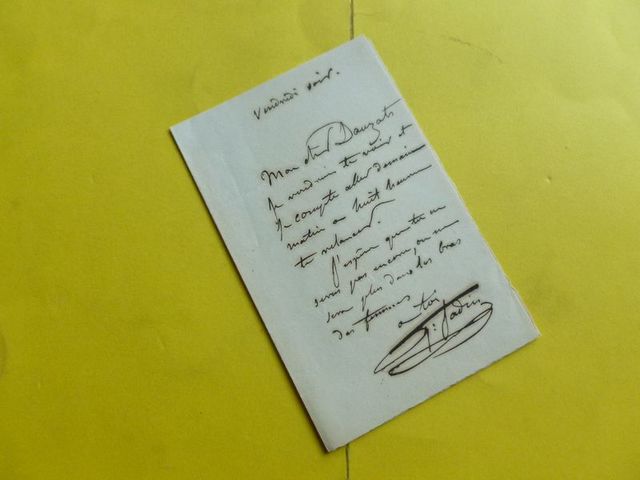 Vendredi soir.
Mon cher Dauzats
Je voudrais te voir et
je compte aller demain
matin à huit heures
te relancer.
J'espère que tu ne
seras pas encore, ou ne
sera plus dans les bras
des femmes
a toi